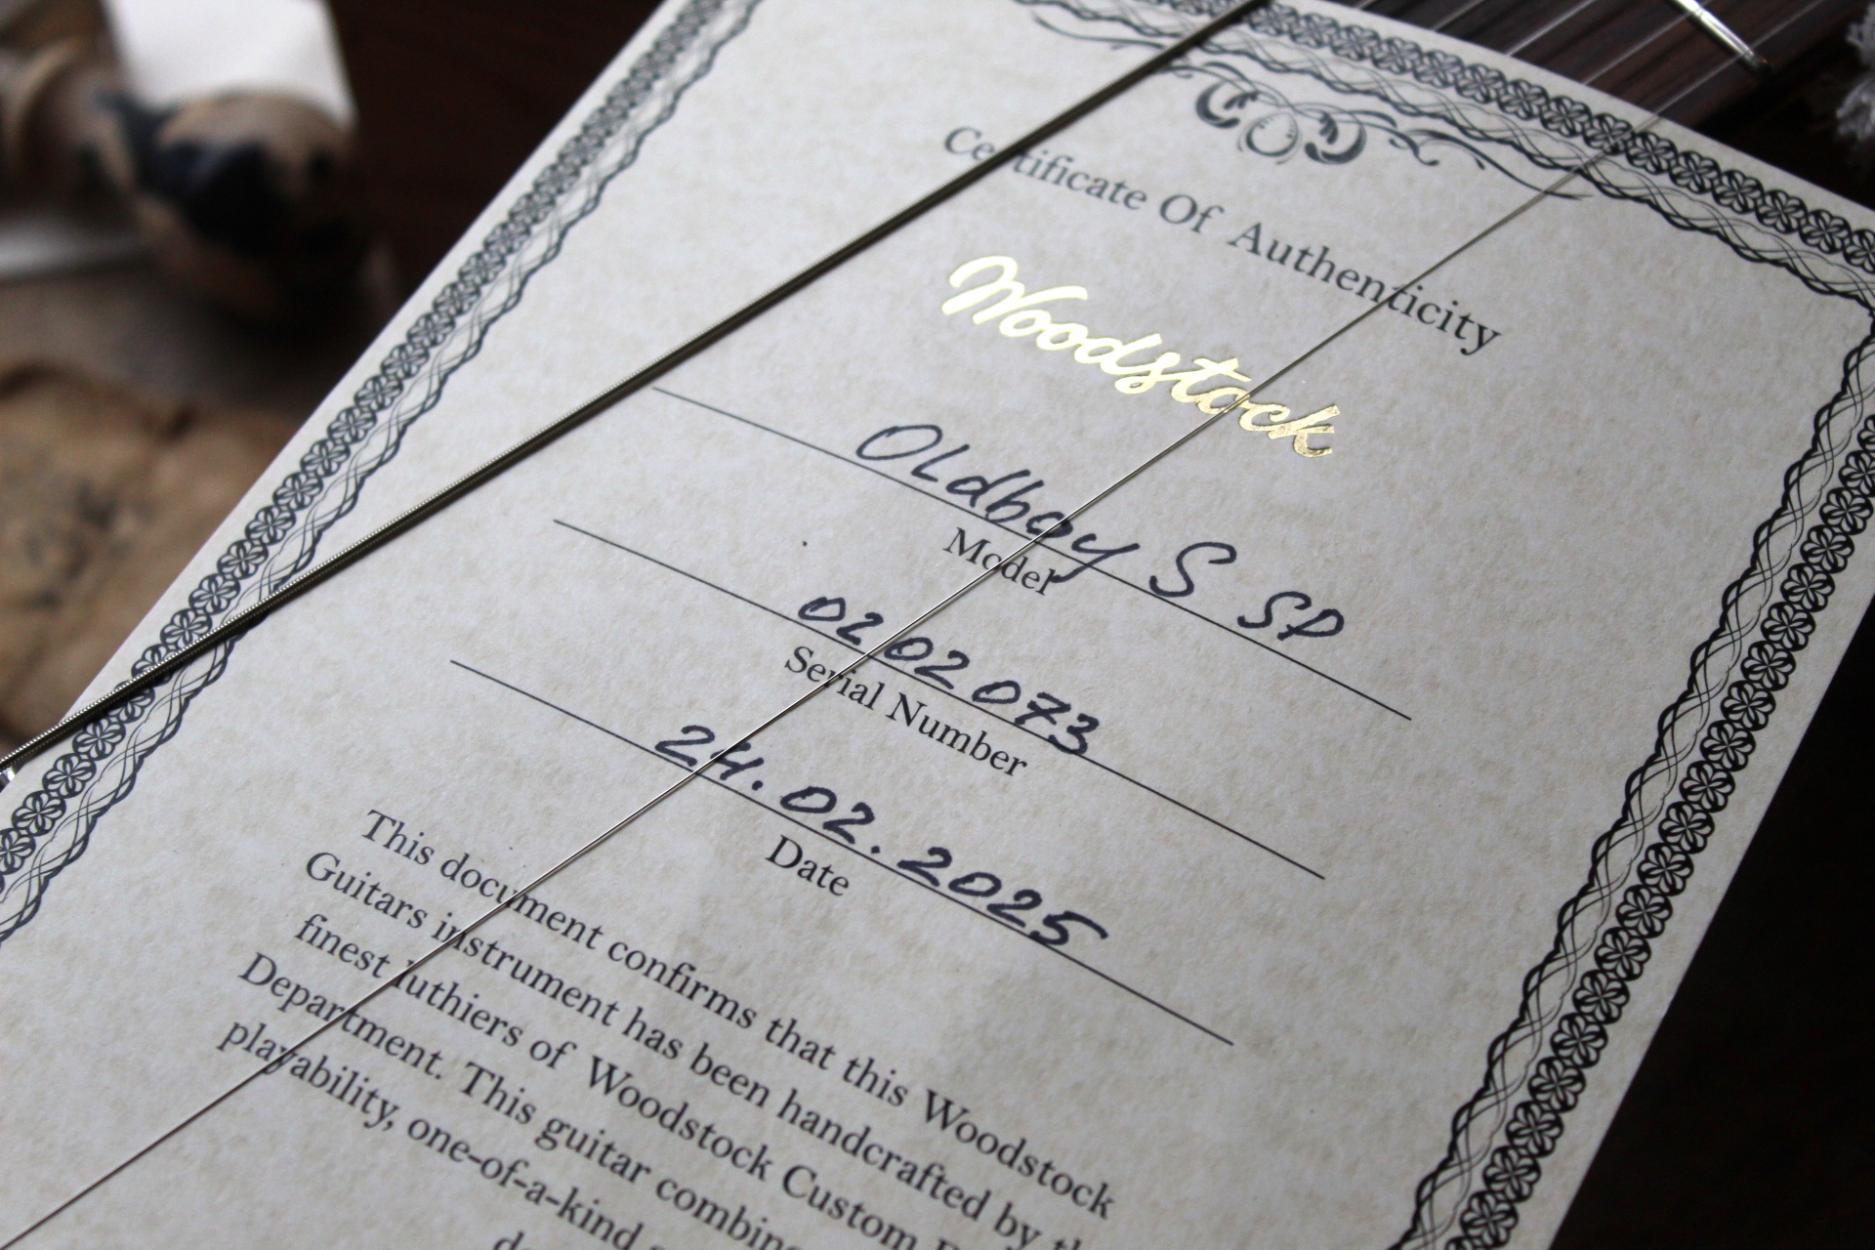 Certificate Of Authenticity
Woodstock
Oldboy S SP
Model
0202073
Serial Number
24.02.2025
Date
This document confirms that this Woodstock
Guitars instrument has been handcrafted by
finest luthiers of Woodstock Custom
Department. This guitar
playability, one-of-a-kind